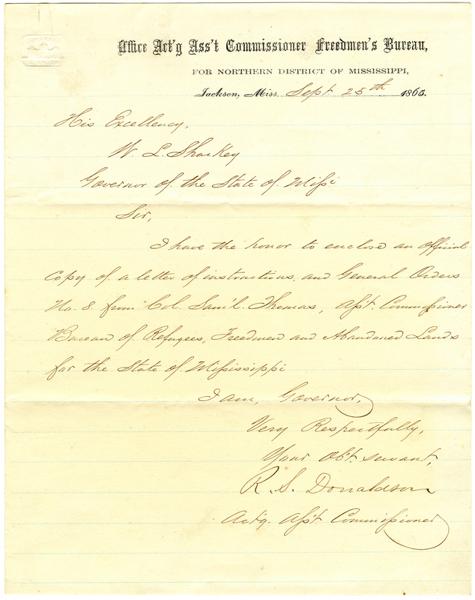 Office Act'g Ass't Commissioner Freedmen's Bureau,
FOR NORTHERN DISTRICT OF MISSISSIPPI,
Jackson, Miss. Sept 25th 1865.
His Excellency,
W. L. Sharkey
Governor of the State of Missi
Sir,
I have the honor to enclose an official
copy of a letter of instructions, and General Orders
No. 8 from Col. Sam'l. Thomas, Asst Commissioner
Bureau of Refugees, Freedmen and Abandoned Lands
for the State of Mississippi
I am, Governor,
Very Respectfully,
Your obt. servant,
R. S. Donaldson
Act'g. Asst Commissioner